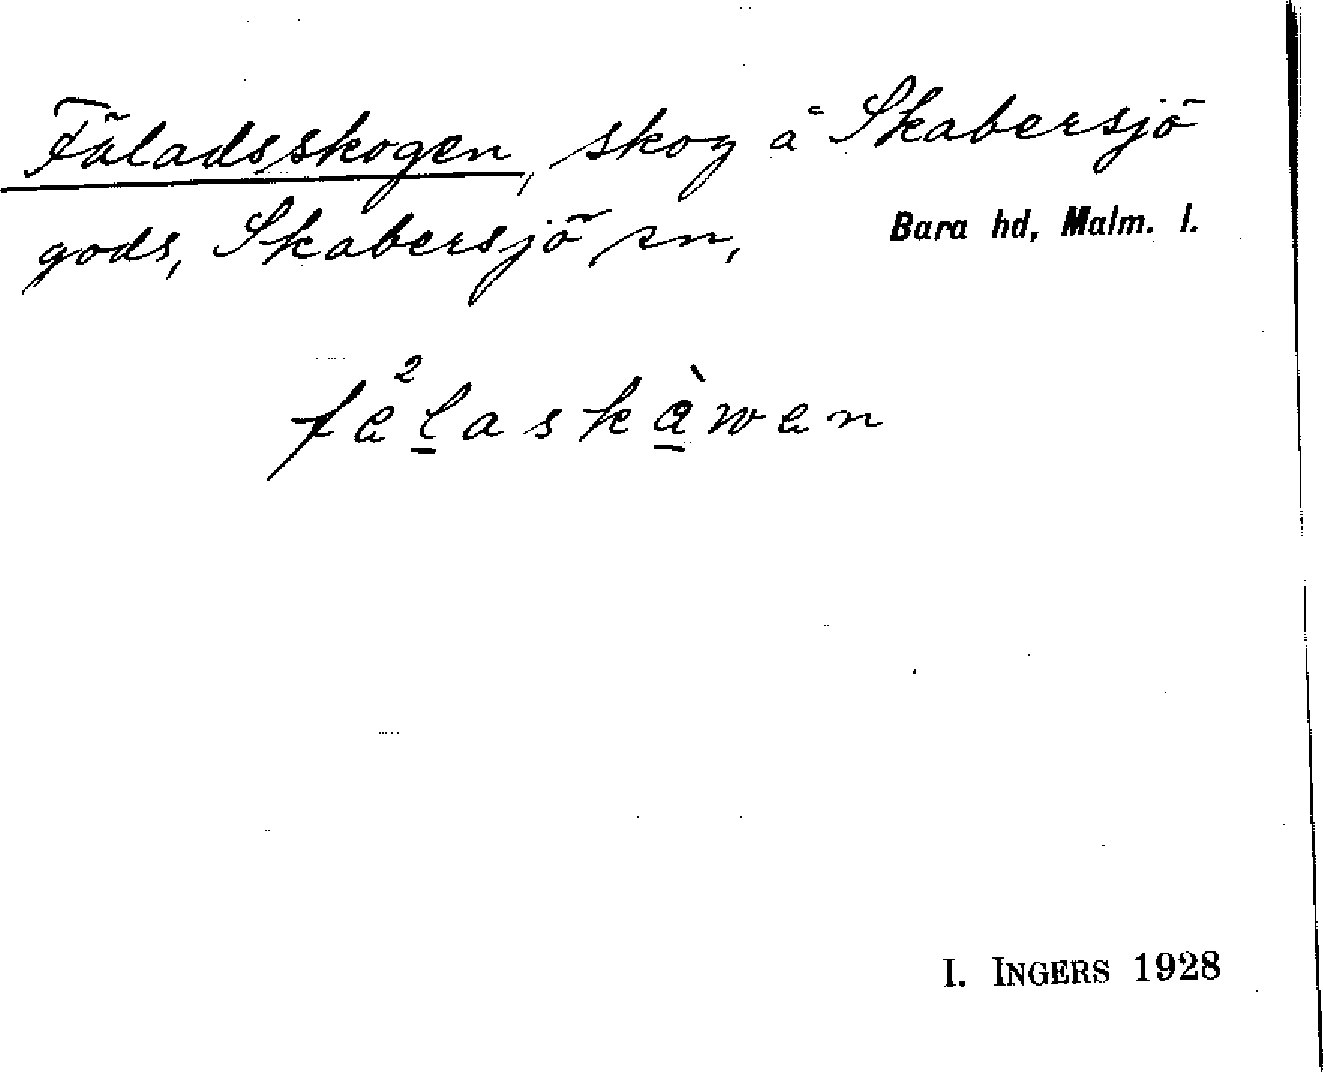 Fäladsskogen, skog å Skabersjö
gods, Skabersjö sn, Bara hd, Malm. l.
fe²laskàwen
I. INGERS 1928